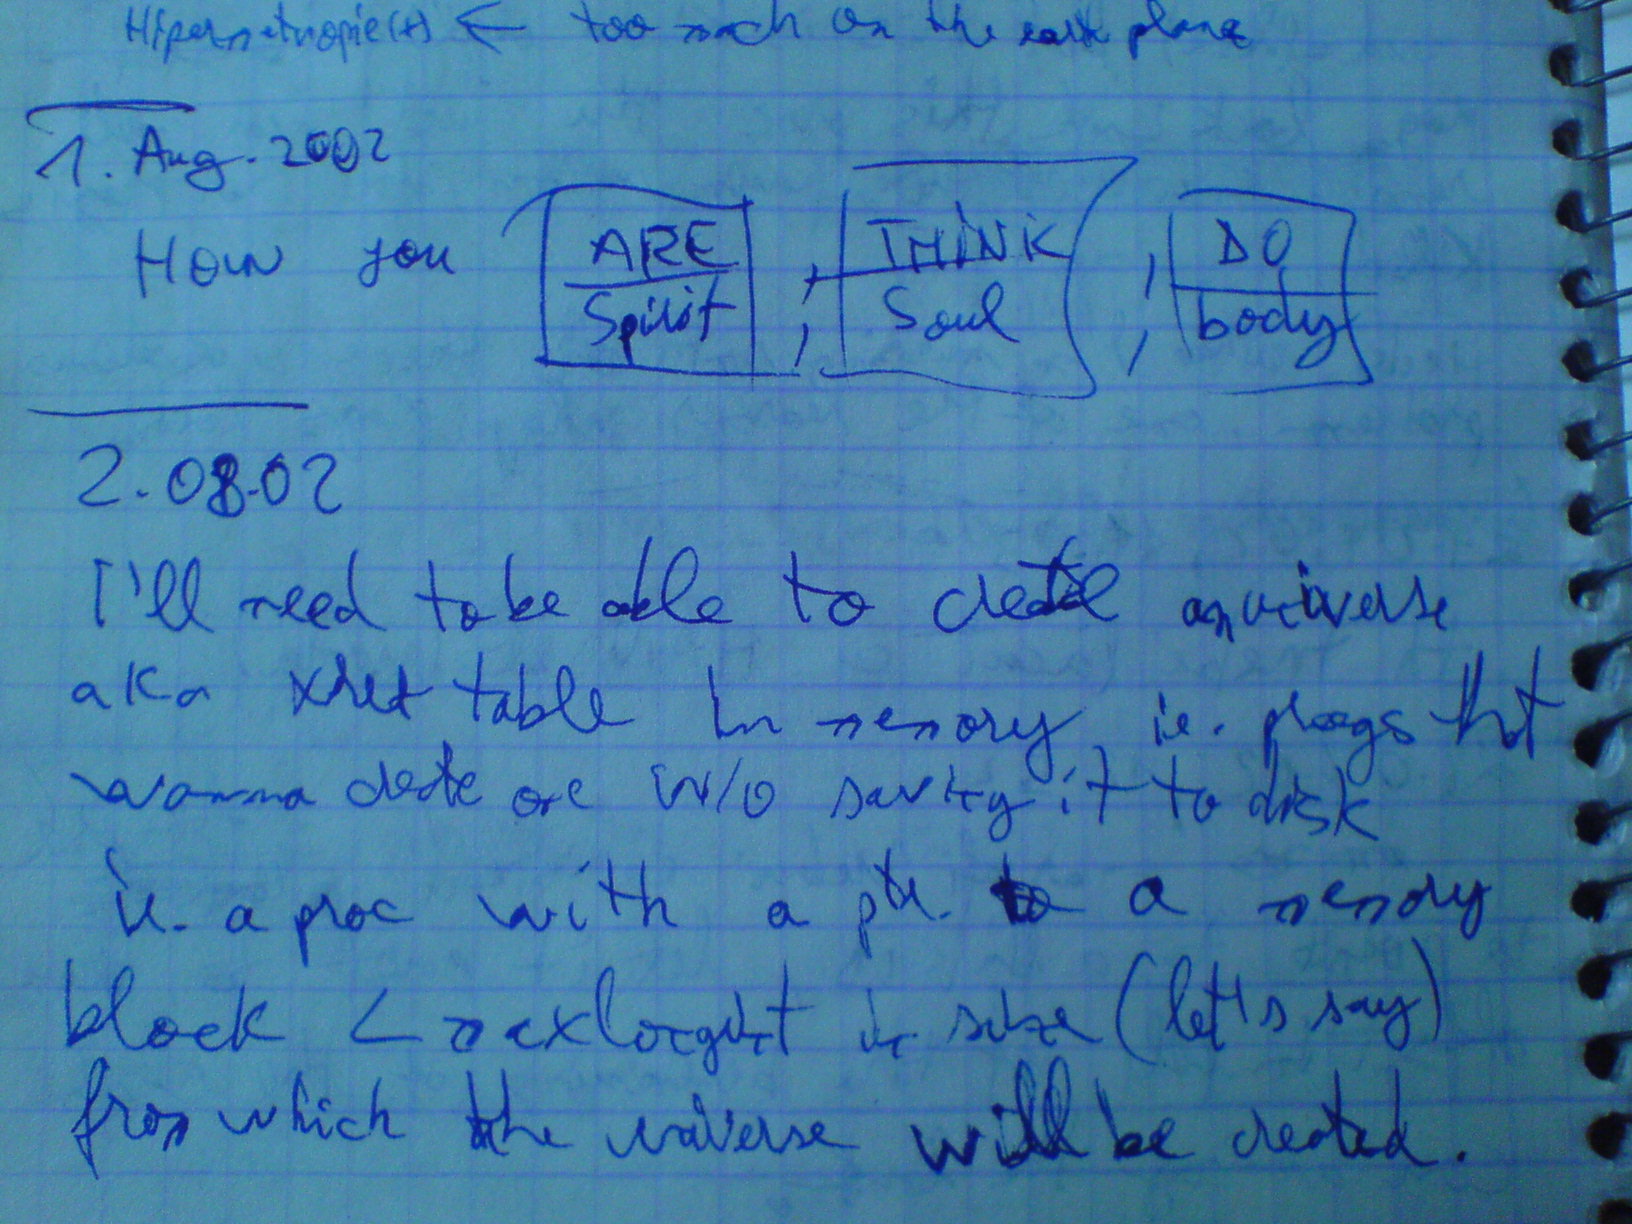 Hipermetropie(+) ← too much on the earth plane
1. Aug. 2002
How you ARE , THINK , DO
Spirit , Soul , body
2.08.02
I'll need to be able to create an universe
aka xref table in memory, ie. progs that
wanna create one w/o saving it to disk
ie. a proc with a ptr. to a memory
block < maxlongint in size (let's say)
from which the universe will be created.